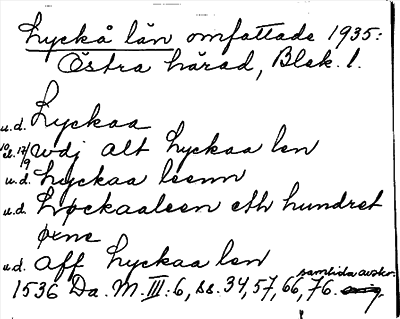 Lyckå län omfattade 1935:
Östra härad, Blek. l.
u.d. Lyckaa
10 el. 17/19 wdj alt Lyckaa len
u.d. Lyckaa leenn
u.d. Løckaaleen eth hundret
øxne
u.d. aff Lyckaa len
samtida avskr.
1536 Da. M. III: 6, ss. 34, 57, 66, 76.